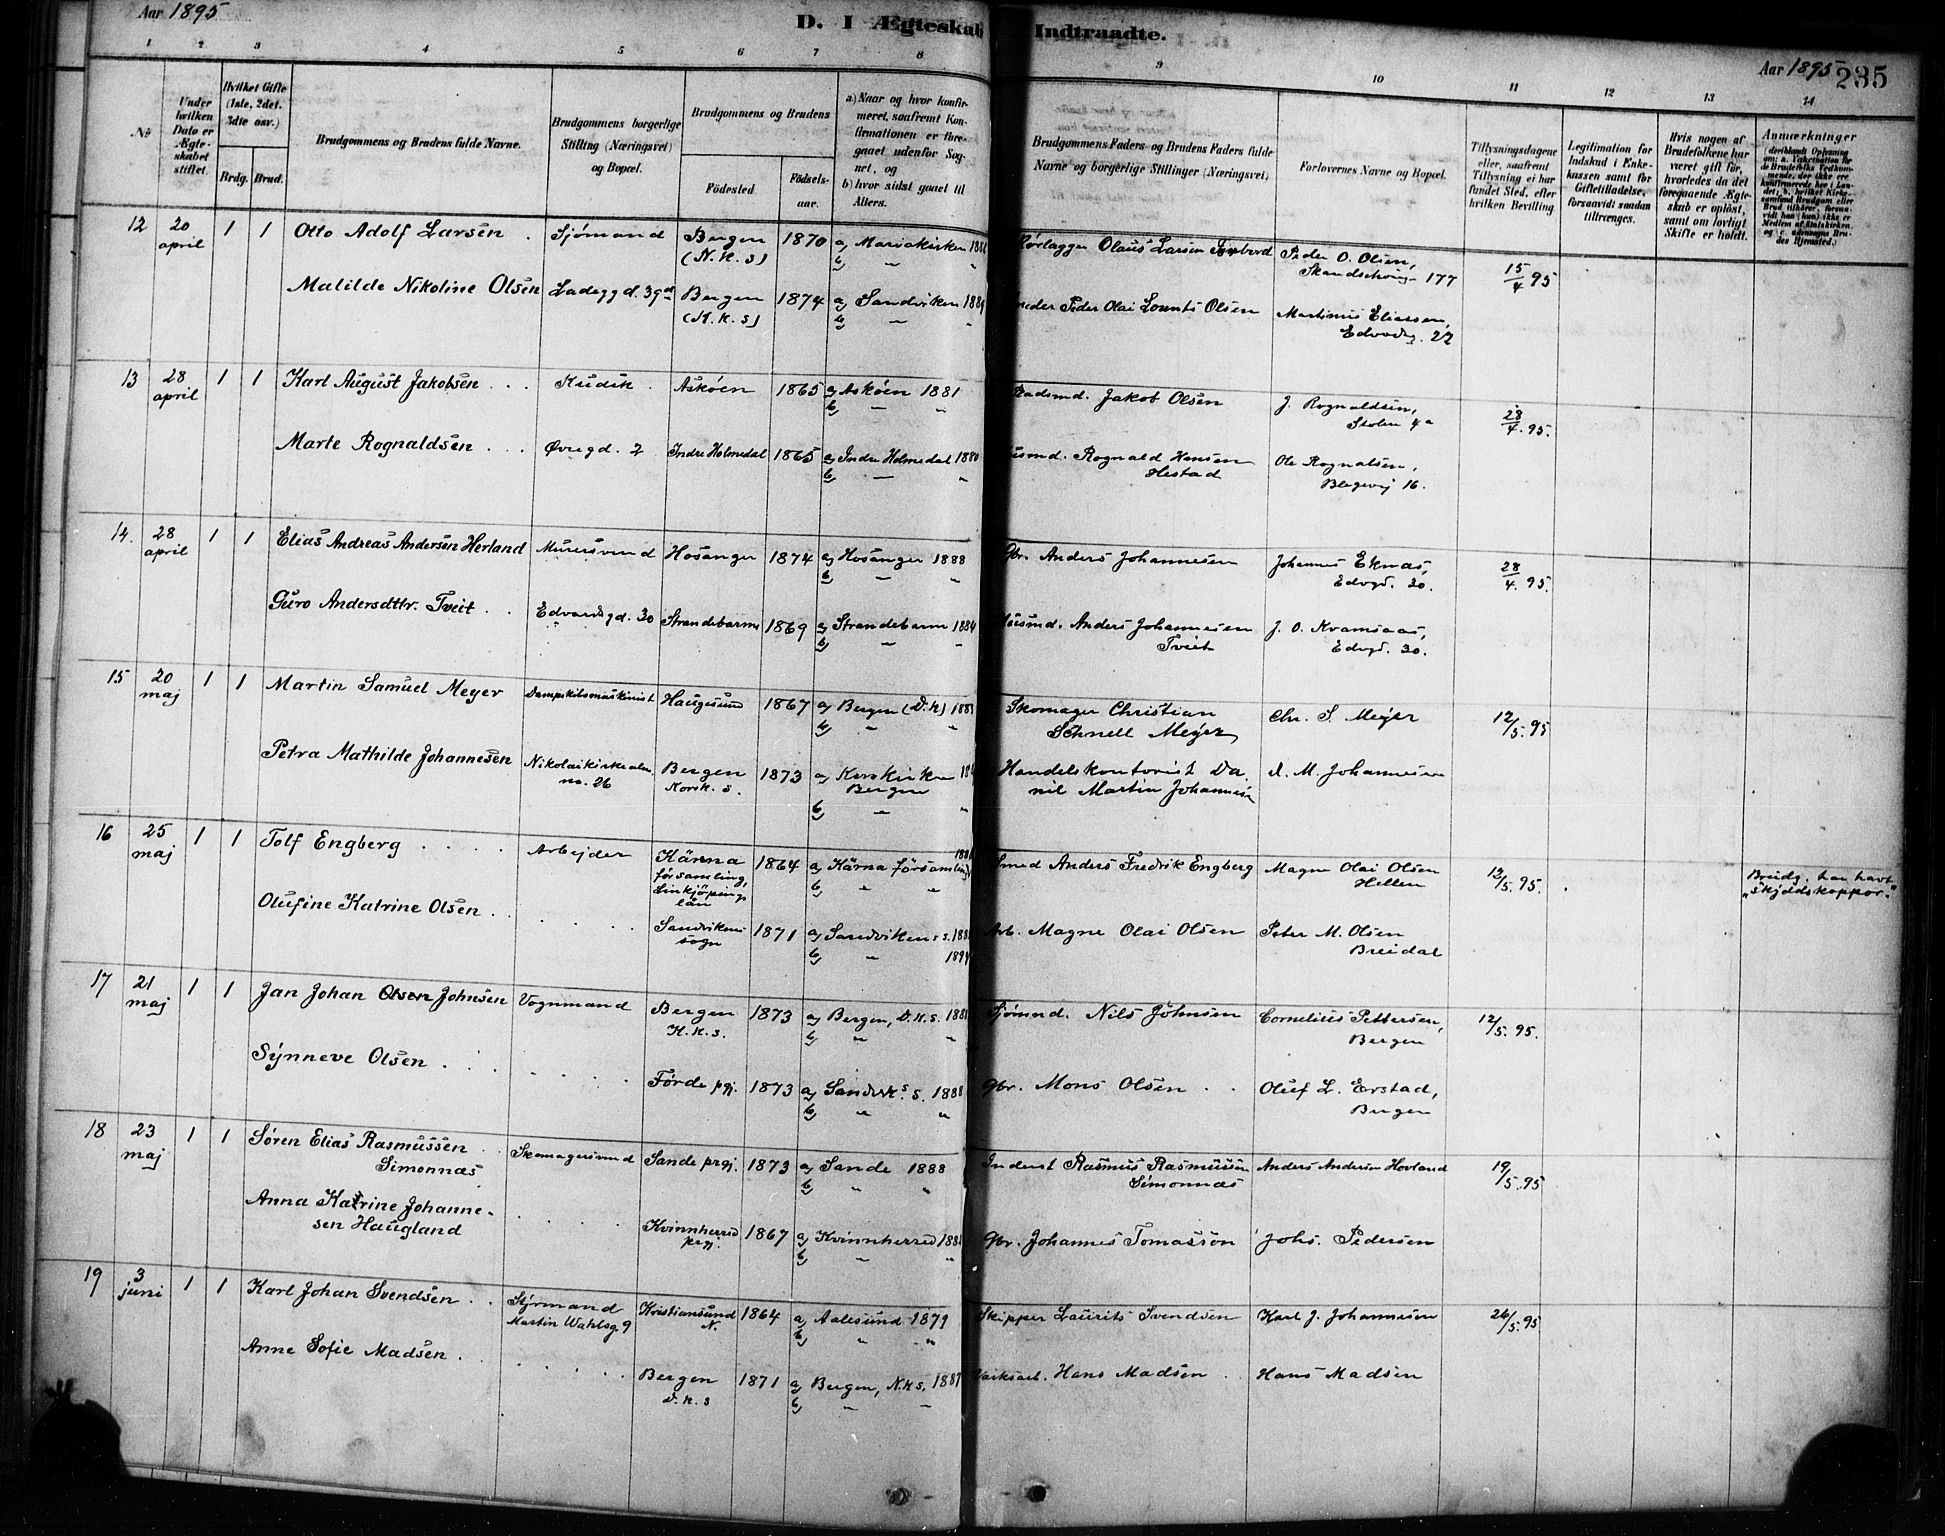 Aar 1895
D. I Ægteskab Indtraadte.
Aar 1895
235
1 2 3 4 5 6 7 8 9 10 11 12 13 14
No
Under hvilken Dato er Ægteskabet stiftet.
Hvilket Gifte (1ste, 2det, 3die osv.)
Brdg. Brud.
Brudgommens og Brudens fulde Navne.
Brudgommens borgerlige Stilling (Næringsvei) og Bopæl.
Brudgommens og Brudens
Födested
Födsels-aar.
a) Naar og hvor konfirmeret, saafremt Konfirmationen er foregaaet udenfor Sognet, og
b) hvor sidst gaaet til Alters.
Brudgommens Faders og Brudens Faders fulde Navne og borgerlige Stillinger (Næringsvei)
Forlovernes Navne og Bopæl.
Tillysningsdagene eller, saafremt Tillysning ei har fundet Sted, efter hvilken Bevilling
Legitimation for Indskud i Enkekassen samt for Giftetilladelse, forsaavidt saadan tiltrænges.
Hvis nogen af Brudefolkene har været gift för, hvorledes da det foregaaende Ægteskab er oplöst, samt om lovligt Skifte er holdt.
Anmærkninger
12 20 april 1 1 Otto Adolf Larsen Sjömand Bergen (N.K.s) 1870 a) Mariakirken
b) " "
Olaus Larsen Peder O. Olsen, 177 15/4 95
Matilde Nikoline Olsen Ladegd. 39 Bergen (N.K.s) 1874 a) Sandviken 1889
b) " "
Peder Olai Olsen Martinus Eliassen, 22
13 28 april 1 1 Karl August Jakobsen Kudsk Asköen 1865 a) Asköen 1881
b) " "
Jakob Olsen J. Rognaldsen, Stölen 4a 28/4. 95.
Marte Rognaldsen Øvregd. 2 Indre Holmedal 1865 a) Indre Holmedal 1880
b) " "
Rognald Hansen Hestad Ole Rognalsen, 16.
14. 28 april 1 1 Elias Andreas Andersen Herland Murersvend Hosanger 1874 a) Hosanger 1888
b) " "
Gbr. Anders Johannesen Johannes Eknæs, Edvgd. 30. 28/4. 95.
Guro Andersdttr. Tveit Edvardsgd. 30 Strandebarm 1869 a) Strandebarm 1884
b) " "
Husmd. Anders Johannesen Tveit J. O. Kvamsaas, Edvgd. 30.
15 20 maj 1 1 Martin Samuel Meyer Dampskibsmaskinist Haugesund 1867 a) Bergen (D.k)
b) " "
Skomager Christian Schnell Meyer Chr. S. Meyer 12/5. 95
Petra Mathilde Johannesen Nikolaikirkealm. no. 26 Bergen Korsk. s. 1873 a) Korskirken Bergen
b) " "
Handelskontorist Daniel Martin Johannesen d. M. Johannesen
16 25 maj 1 1 Tolf Engberg Arbejder Kärna församling, Linkjöpings län 1864 a) Kärna församling
b) " "
Smed Anders Fredrik Engberg Magne Olai Olsen Hellen 12/5. 95. Brudg. har havt "skyddskoppor."
Olufine Katrine Olsen Sandvikens sogn 1871 a) Sandvikens s.
b) "
Arb. Magne Olai Olsen Peter M. Olsen Breidal
17 21 maj 1 1 Jan Johan Olsen Johnsen Vognmand Bergen K.k.s. 1873 a) Bergen, D.k.s. 1888
b) " "
Sjömnd. Nils Johnsen Cornelius Pettersen, Bergen 12/5. 95.
Synneve Olsen Förde pgj. 1873 a) Sandvk.s s. 1888
b) " "
Gbr. Mons Olsen Oluf L. Erstad, Bergen
18 23 maj 1 1 Søren Elias Rasmussen Simonnæs Skomagersvend Sande prgj. 1873 a) Sande 1888
b) " "
Inderst Rasmus Rasmussen Simonnæs Anders Andersen Hovland 19/5. 95
Anna Katrine Johannesen Haugland Kvinnherred prgj. 1867 a) Kvinnherred
b) " "
Gbr. Johannes Tomasson Johs. Pedersen
19 3 juni 1 1 Karl Johan Svendsen Styrmand Martin Wahlsg. 9 Kristiansund N. 1864 a) Aalesund 1879
b) " "
Skipper Laurits Svendsen Karl J. Johannesen 26/5. 95
Anne Sofie Madsen Bergen D.k.s 1871 a) Bergen, N.k.s. 1887
b) " "
Hans Madsen Hans Madsen